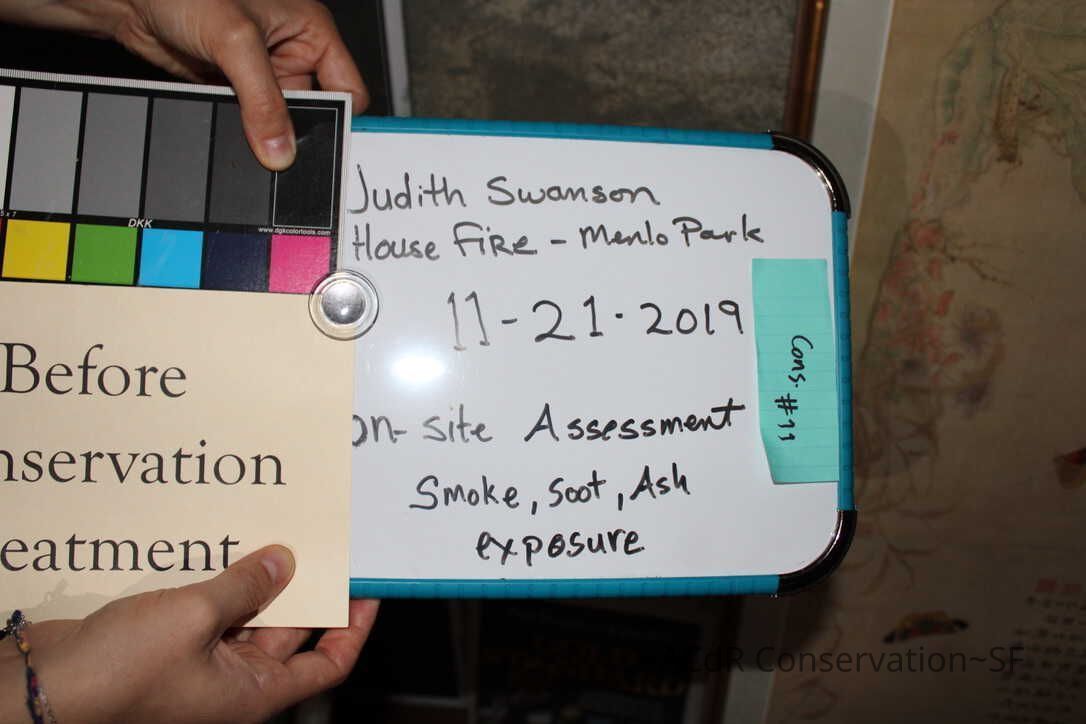 5 x 7
DKK
www.dgkcolortools.com
Before
nservation
eatment
Judith Swanson
House Fire - Menlo Park
11-21-2019
on-site Assessment
Smoke, Soot, Ash
exposure
Cons. #11
EdR Conservation~SF